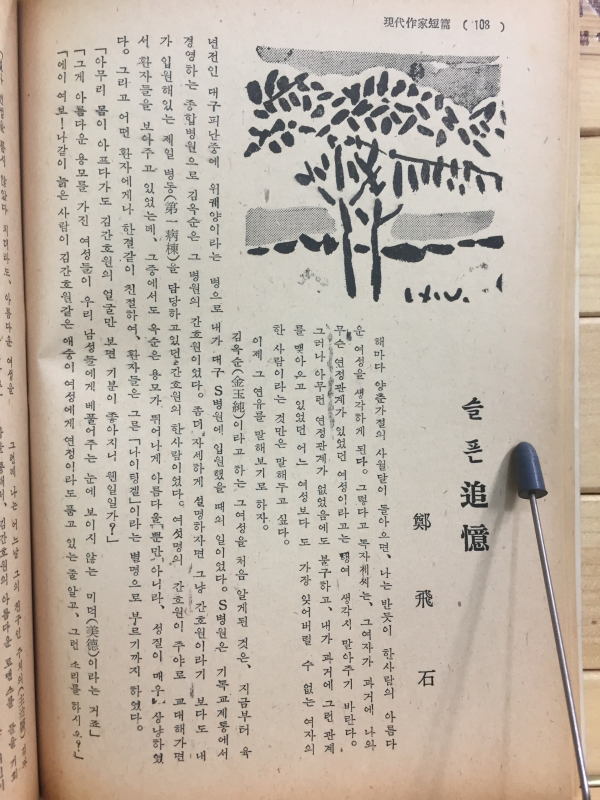 現代作家短篇 ( 108 )
슬픈 追憶
鄭飛石
해마다 양춘가절의 사월달이 돌아오면, 나는 반듯이 한사람의 아름다
운 여성을 생각하게 된다. 그렇다고 독자제씨는, 그여자가 과거에 나와
무슨 연정관계가 있었던 여성이라고는 행여 생각지 말아주기 바란다.
그러나 아무런 연정관계가 없었음에도 불구하고, 내가 과거에 그런 관계
를 맺아오고 있었던 어느 여성보다도 가장 잊어버릴 수 없는 여자의
한 사람이라는 것만은 말해두고 싶다.
이제 그 연유를 말해보기로 하자.
김옥순(金玉純)이라고 하는 그여성을 처음 알게된 것은, 지금부터 육
년전인 대구피난중에 위궤양이라는 병으로 내가 대구 S병원에 입원했을 때의 일이었다. S병원은 기독교계통에서
경영하는 종합병원으로 김옥순은 그 병원의 간호원이었다. 좀더 자세하게 설명하자면 그냥 간호원이라기 보다도 내
가 입원해있는 제일 병동(第一病棟)을 담당하고있던 간호원의 한사람이었다. 여섯명의 간호원이 주야로 교대해가면
서 환자들을 보아주고 있었는데, 그중에서도 옥순은 용모가 뛰어나게 아름다울뿐만아니라, 성질이 매우 상냥하였
다. 그라고 어떤 환자에게나 한결같이 친절하여, 환자들은 그를 「나이팅겔」이라는 별명으로 부르기까지 하였다.
「아무리 몸이 아프다가도 김간호원의 얼굴만 보면 기분이 좋아지니 웬일일가?」
「그게 아름다운 용모를 가진 여성들이 우리 남성들에게 베풀어주는 눈에 보이지 않는 미덕(美德)이라는 거죠」
「에이 여보! 나같이 늙은 사람이 김간호원같은 애숭이 여성에게 연정이라도 품고 있는줄 알고, 그런 소리를 하시오?」